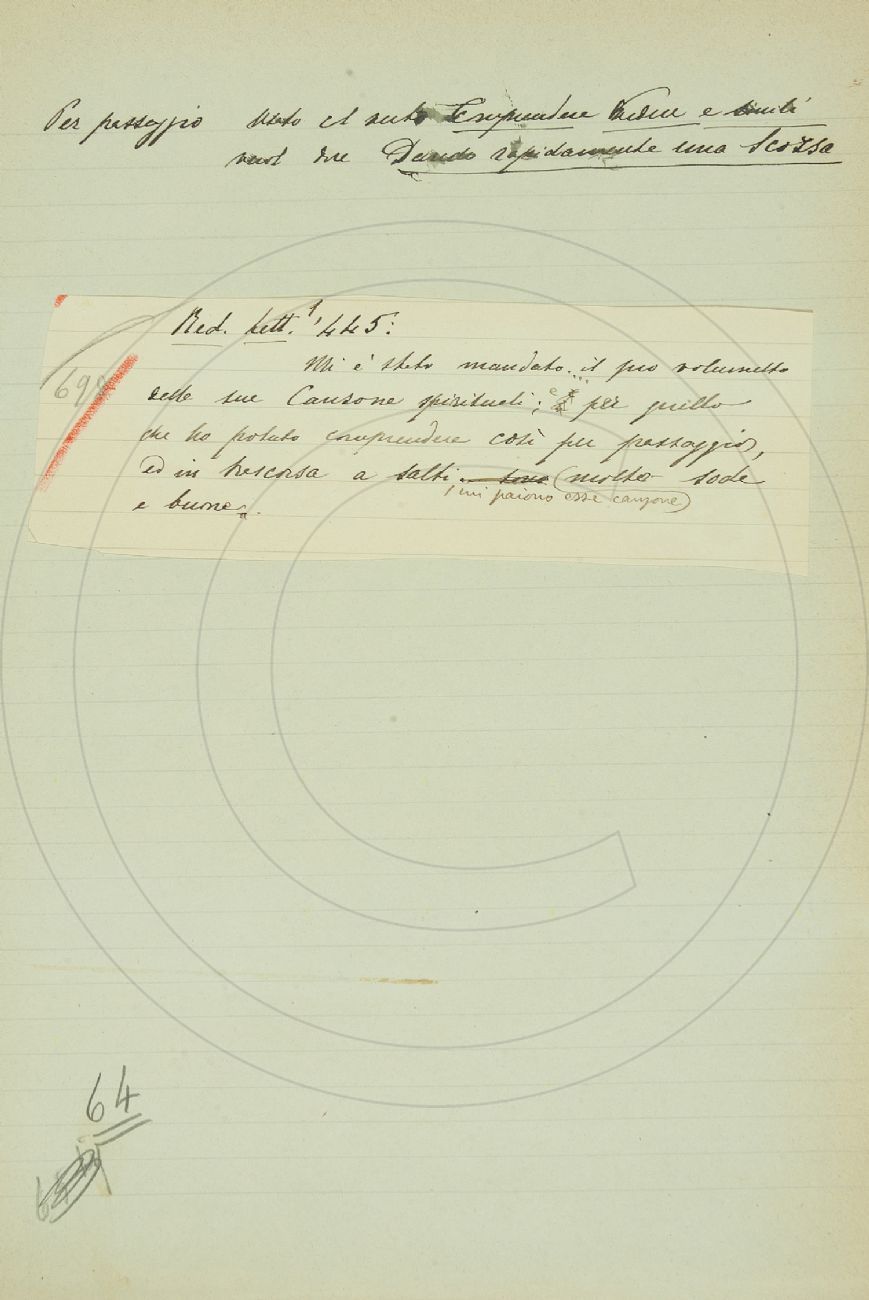 Per passaggio usato col verbo Comprendere Vedere e simili
vuol dire Dando rapidamente una Scorsa
Red. Lett. 1, 445:
Mi è stato mandato... il suo volumetto
delle sue Canzone spirituali; e per quello
che ho potuto comprendere così per passaggio,
ed in trascorsa a salti (molto sode
mi paiono esse canzone)
e buone.
698
64